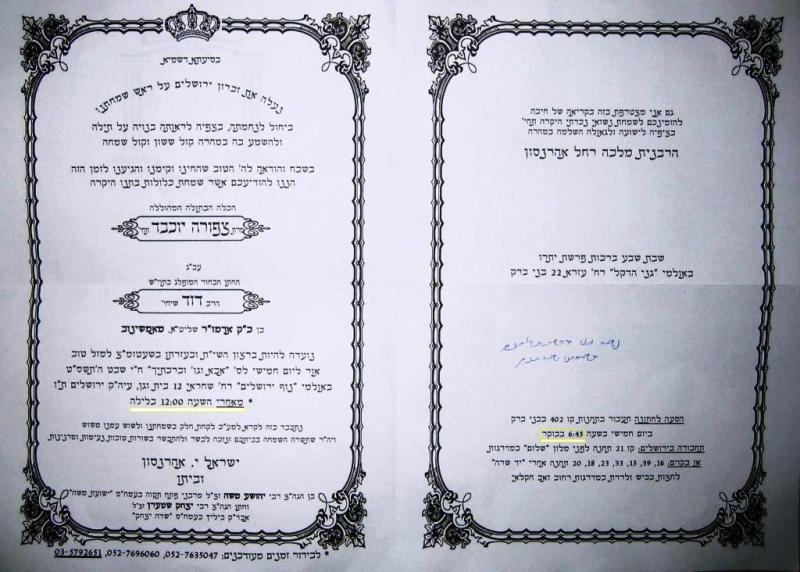 בסיעתא דשמיא
נעלה את זכרון ירושלים על ראש שמחתנו
ביחול לנחמתה, בצפיה לראותה בנויה על תילה
ולהשמע בה במהרה קול ששון וקול שמחה
בשבח והודאה לה' הטוב שהחינו וקימנו והגיענו לזמן הזה
הננו להודיעכם אשר שמחת כלולות בתנו היקרה
הכלה הבתולה המהוללה
מרת צפורה יוכבד תחי'
עב"ג
החתן הבחור המופלג בתוי"ש
הרב דוד שיחי'
בן כ"ק אדמו"ר שליט"א, מאמשינוב
נועדה להיות ברצון השי"ת ובעזרתו בשעטומ"צ למזל טוב
אור ליום חמישי לס' "אבא וגו' וברכתיך" ח"י שבט ה'תשס"ט
באולמי "נוף ירושלים" רח' שחראי 12 בית וגן, עיה"ק ירושלים ת"ו
* מאחרי השעה 12:00 בלילה
נתכבד בזה לקרא למע"כ לקחת חלק בשמחתנו ולשוש עמנו משוש
ויה"ר שתשרה השמחה בביתכם ונזכה לבשר ולהתבשר בשורות טובות נעימות ומרנינות.
ישראל י. אהרנסון
וביתו
בן הגה"צ רבי יהושע משה זצ"ל מרבני פתח תקוה בעמח"ס "ישועת משה"
וחתן הגה"צ רבי יצחק שמערן זצ"ל
אבד"ק ביליץ בעמח"ס "שדה יצחק"
* לבירור זמנים מעודכנים: 052-7635047, 052-7696060, 03-5792651
גם אני מצטרפת בזה בקריאה של חיבה
להזמינכם לשמחת נשואי נכדתי היקרה תחי'
בצפיה לישועה ולגאולה השלמה במהרה
הרבנית מלכה רחל אהרנסון
שבת שבע ברכות פרשת יתרו
באולמי "גני הדקל" רח' עזרא 22 בני ברק
הסעה לחתונה תעבור בתחנות קו 402 בבני ברק
ביום חמישי בשעה 6:45 בבוקר
תחבורה בירושלים: קו 21 תחנה לפני מלון "שלום" במדרגות
או בקוים: 16, 39, 13, 33, 23, 18, 20 תחנה אחרי "יד שרה"
לחצות כביש ולרדת במדרגות רחוב זאב חקלאי.